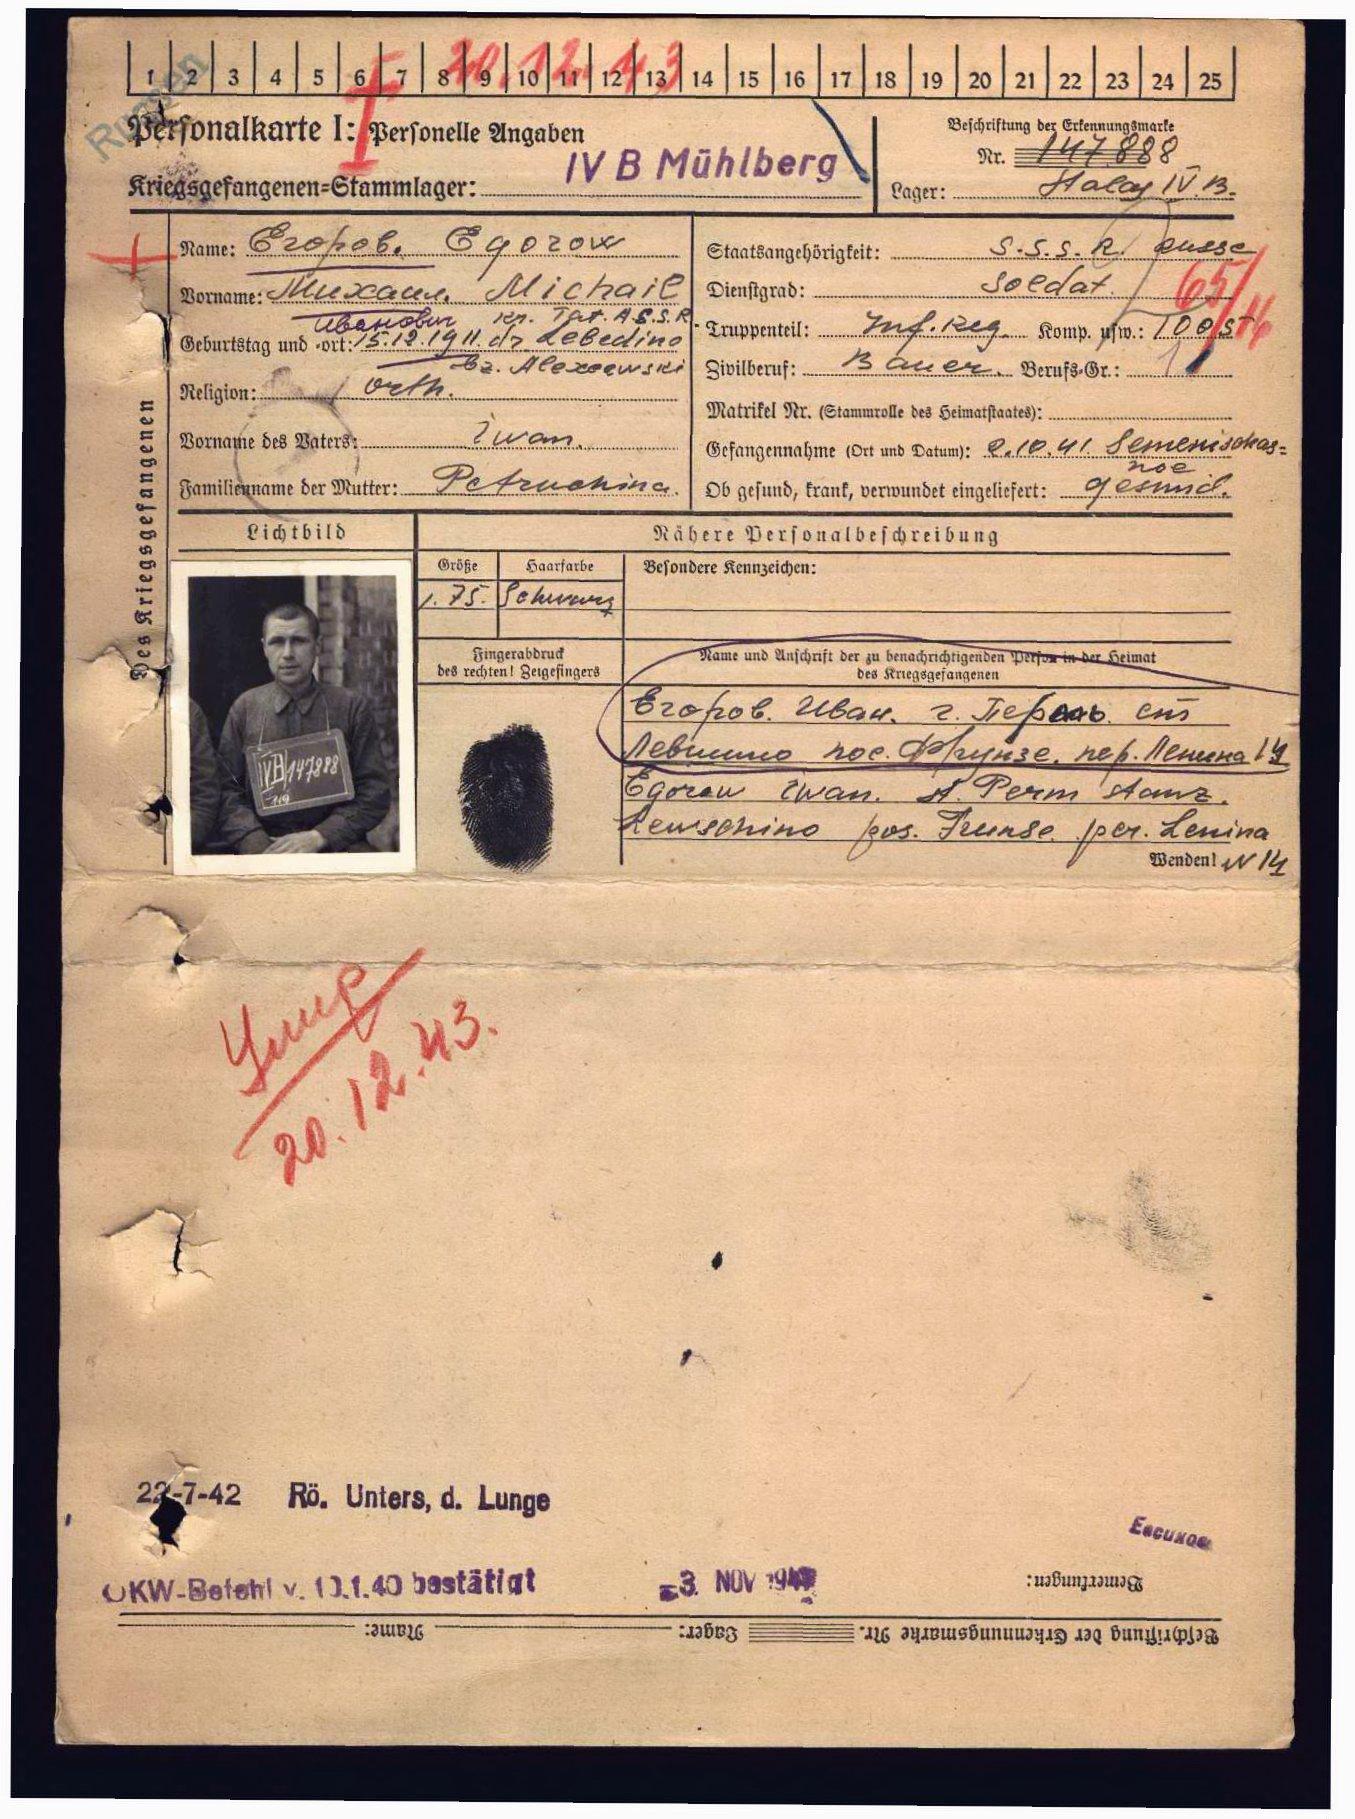 1 2 3 4 5 6 7 8 9 10 11 12 13 14 15 16 17 18 19 20 21 22 23 24 25
20.12.43
Russen
Personalkarte I: Personelle Angaben
Beschriftung der Erkennungsmarke
Nr. 147888
IV B Mühlberg
Kriegsgefangenen=Stammlager:
Lager: Stalag IV B.
des Kriegsgefangenen
Name: Егоров. Egorow
Vorname: Михаил. Michail
Иванович кр. Tat. A.S.S.R.
Geburtstag und -ort: 15.12.1911. dr Lebedino
bz. Alexeewski
Religion: orth.
Vorname des Vaters: Iwan.
Familienname der Mutter: Petruchina.
Staatsangehörigkeit: S.S.S.R. russe
Dienstgrad: Soldat.
65/
Truppenteil: Inf. Reg. Komp. usw.: 100 ST
Zivilberuf: Bauer. Berufs-Gr.: 1
Matrikel Nr. (Stammrolle des Heimatstaates):
Gefangennahme (Ort und Datum): 2.10.41. Semenischas=
noe
Ob gesund, krank, verwundet eingeliefert: gesund.
Lichtbild
Nähere Personalbeschreibung
Größe Haarfarbe Besondere Kennzeichen:
1.75. Schwarz
Fingerabdruck
des rechten! Zeigefingers
Name und Anschrift der zu benachrichtigenden Person in der Heimat
des Kriegsgefangenen
Егоров. Иван. г. Пермь. ст
Левшино пос. Фрунзе. пер. Ленина 14
Egorow Iwan. st. Perm stanz.
Lewschino pos. Frunse per. Lenina
Wenden! N 14
IVB 147888
Умер
20.12.43.
22-7-42 Rö. Unters, d. Lunge
Евсиков
OKW-Befehl v. 10.1.40 bestätigt
3. NOV
Bemerkungen:
Beschriftung der Erkennungsmarke Nr. Lager: Name: